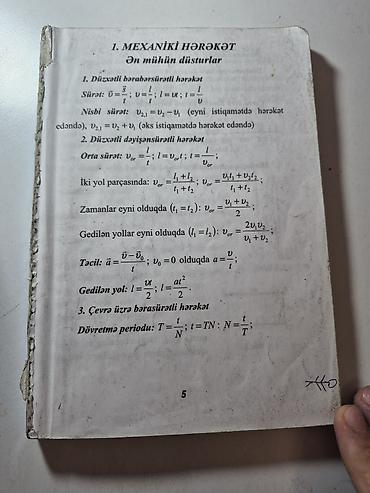 1. MEXANİKİ HƏRƏKƏT
Ən mühün düsturlar
1. Düzxətli bərabərsürətli hərəkət
Sürət: ῡ = s̄/t ; υ = l/t ; l = υt ; t = l/υ
Nisbi sürət: υ₂,₁ = υ₂ − υ₁ (eyni istiqamətdə hərəkət
edəndə), υ₂,₁ = υ₂ + υ₁ (əks istiqamətdə hərəkət edəndə)
2. Düzxətli dəyişənsürətli hərəkət
Orta sürət: υₒᵣ = l/t ; l = υₒᵣt ; t = l/υₒᵣ ;
İki yol parçasında: υₒᵣ = (l₁ + l₂)/(t₁ + t₂) ; υₒᵣ = (υ₁t₁ + υ₂t₂)/(t₁ + t₂) ;
Zamanlar eyni olduqda (t₁ = t₂) : υₒᵣ = (υ₁ + υ₂)/2 ;
Gedilən yollar eyni olduqda (l₁ = l₂) : υₒᵣ = 2υ₁υ₂/(υ₁ + υ₂) ;
Təcil: ā = (ῡ − ῡ₀)/t ; υ₀ = 0 olduqda a = υ/t ;
Gedilən yol: l = υt/2 ; l = at²/2 .
3. Çevrə üzrə bərasürətli hərəkət
Dövretmə periodu: T = t/N ; t = TN : N = t/T ;
5